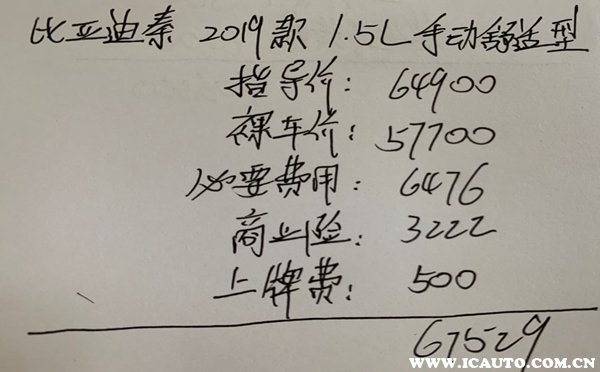 比亚迪秦 2019款 1.5L手动舒适型
指导价: 64900
裸车价: 57700
必要费用: 6476
商业险: 3222
上牌费: 500
67529
WWW.ICAUTO.COM.CN